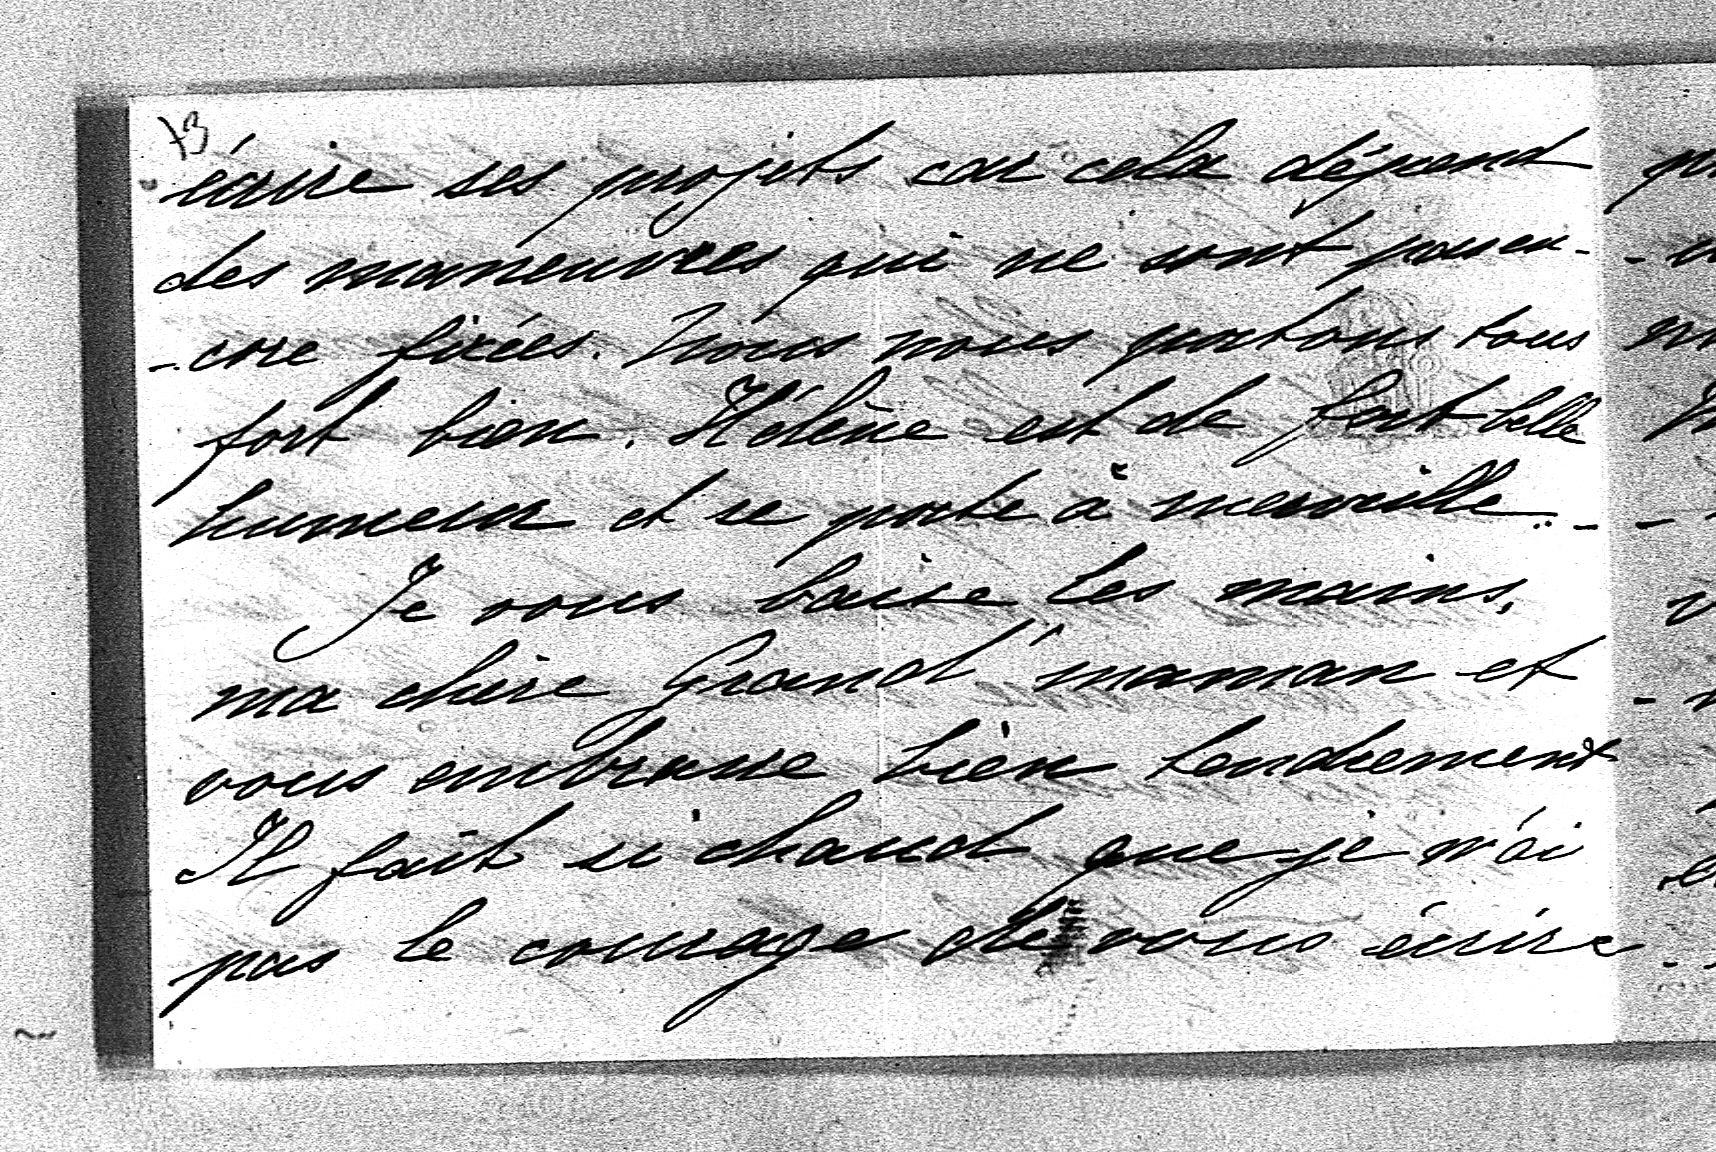 73
écrire ses projets car cela dépend
des maneuvres qui ne sont pas en-
-core fixées. Nous nous portons tous
fort bien. Hélène est de fort belle
humeur et se porte à merveille..-
Je vous baise les mains,
ma chère Grand'maman et
vous embrasse bien tendrement
Il fait si chaud que je n'ai
pas le courage de vous écrire